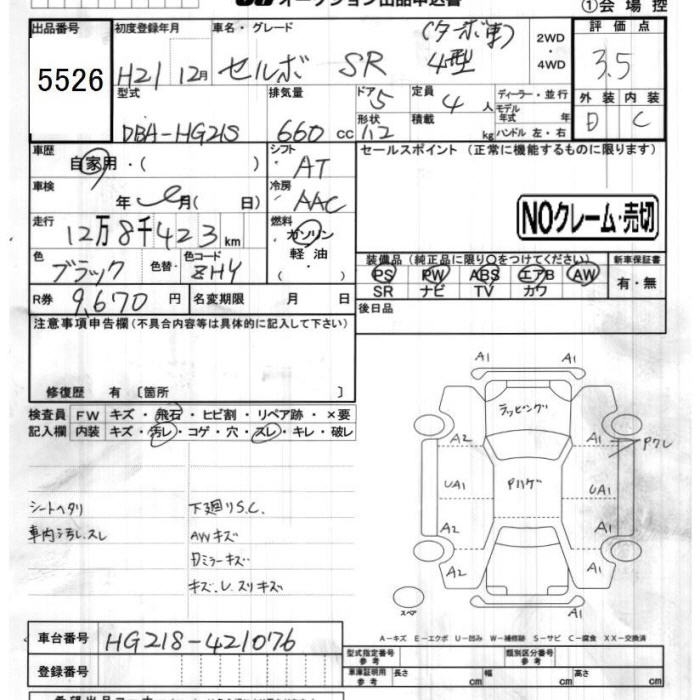 オークション出品申込書 ①会場控
出品番号 初度登録年月 車名・グレード (ターボ車) 2WD・4WD 評価点
5526 H21 12月 セルボ SR 4型 3.5
型式 排気量 ドア 5 定員 4人 ディーラー・並行 外装 内装
モデル年式 年 D C
DBA-HG21S 660 cc 形状 積載 kg ハンドル 左・右
車歴 シフト セールスポイント (正常に機能するものに限ります)
自家用・( ) AT
車検 冷房
年 月( 日) AAC NOクレーム・売切
走行 燃料
12万8千423km ガソリン・軽油・
装備品(純正品に限り○をつけてください) 新車保証書
色 色替・ 色コード PS PW ABS エアB AW 有・無
ブラック ZHY SR ナビ TV カワ
R券 9,670円 名変期限 月 日 後日品
注意事項申告欄(不具合内容等は具体的に記入して下さい)
修復歴 有 [箇所 ]
検査員 FW キズ・飛石・ヒビ割・リペア跡・×要
記入欄 内装 キズ・汚レ・コゲ・穴・スレ・キレ・破レ
シートヘタリ 下廻りS.C.
車内汚レ.スレ AWキズ
Dミラーキズ
キズ.レ.スリキズ
A1 A1
ラッピング
A2 A1 Pワレ
UA1 Pハゲ UA1
A2 A1
A2 A1
スペア A1 A1
A-キズ E-エクボ U-凹み W-補修跡 S-サビ C-腐食 XX-交換済
車台番号 HG21S-421076
型式指定番号 参考 類別区分番号 参考
登録番号 車庫証明用 参考 長さ cm 幅 cm 高さ cm
希望出品コーナー